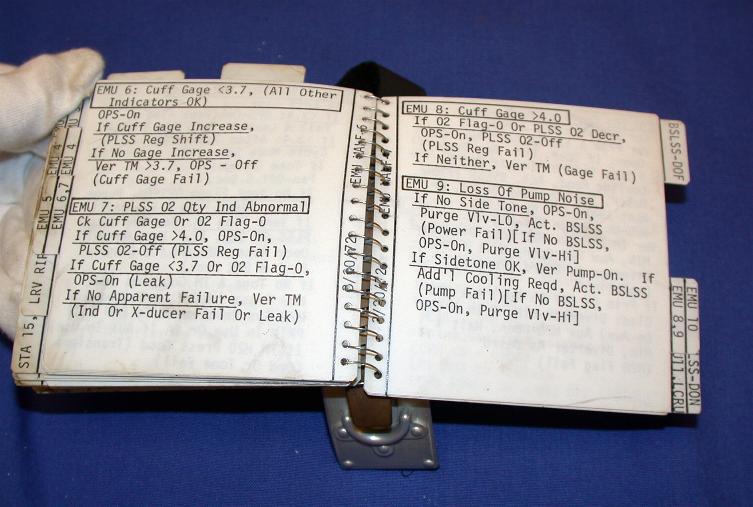 EMU 6: Cuff Gage <3.7, (All Other
Indicators OK)
OPS-On
If Cuff Gage Increase,
(PLSS Reg Shift)
If No Gage Increase,
Ver TM >3.7, OPS - Off
(Cuff Gage Fail)
EMU 7: PLSS O2 Qty Ind Abnormal
Ck Cuff Gage Or O2 Flag-O
If Cuff Gage >4.0, OPS-On,
PLSS O2-Off (PLSS Reg Fail)
If Cuff Gage <3.7 Or O2 Flag-O,
OPS-On (Leak)
If No Apparent Failure, Ver TM
(Ind Or X-ducer Fail Or Leak)
EMU 8: Cuff Gage >4.0
If O2 Flag-O Or PLSS O2 Decr,
OPS-On, PLSS O2-Off
(PLSS Reg Fail)
If Neither, Ver TM (Gage Fail)
EMU 9: Loss Of Pump Noise
If No Side Tone, OPS-On,
Purge Vlv-LO, Act. BSLSS
(Power Fail)[If No BSLSS,
OPS-On, Purge Vlv-Hi]
If Sidetone OK, Ver Pump-On. If
Add'l Cooling Reqd, Act. BSLSS
(Pump Fail)[If No BSLSS,
OPS-On, Purge Vlv-Hi]
STA 15, LRV RIP
EMU 5
EMU 4
EMU 6,7
EMU 4
EMU MALF
EMU MALF
BSLSS-DOF
EMU 10
EMU 8,9
LSS-DON